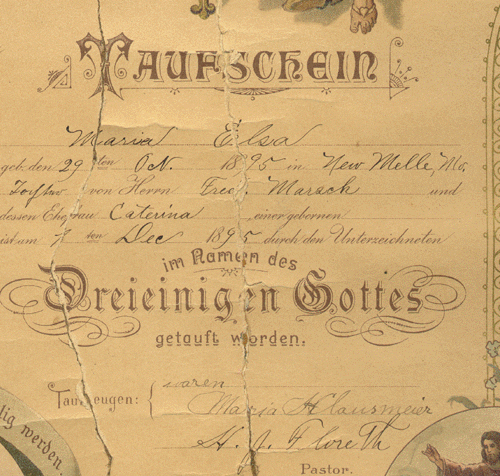 TAUFSCHEIN
Maria Elsa
geb. den 29 ten Oct. 1895 in New Melle, Mo.
Tochter von Herrn Fred. Marsch und
dessen Ehefrau Caterina einer gebornen
ist am 7 ten Dec 1895 durch den Unterzeichneten
im Namen des
Dreieinigen Gottes
getauft worden.
waren
Taufzeugen: {
Maria Klausmeier
H. J. Floreth
Pastor.
lig werden.